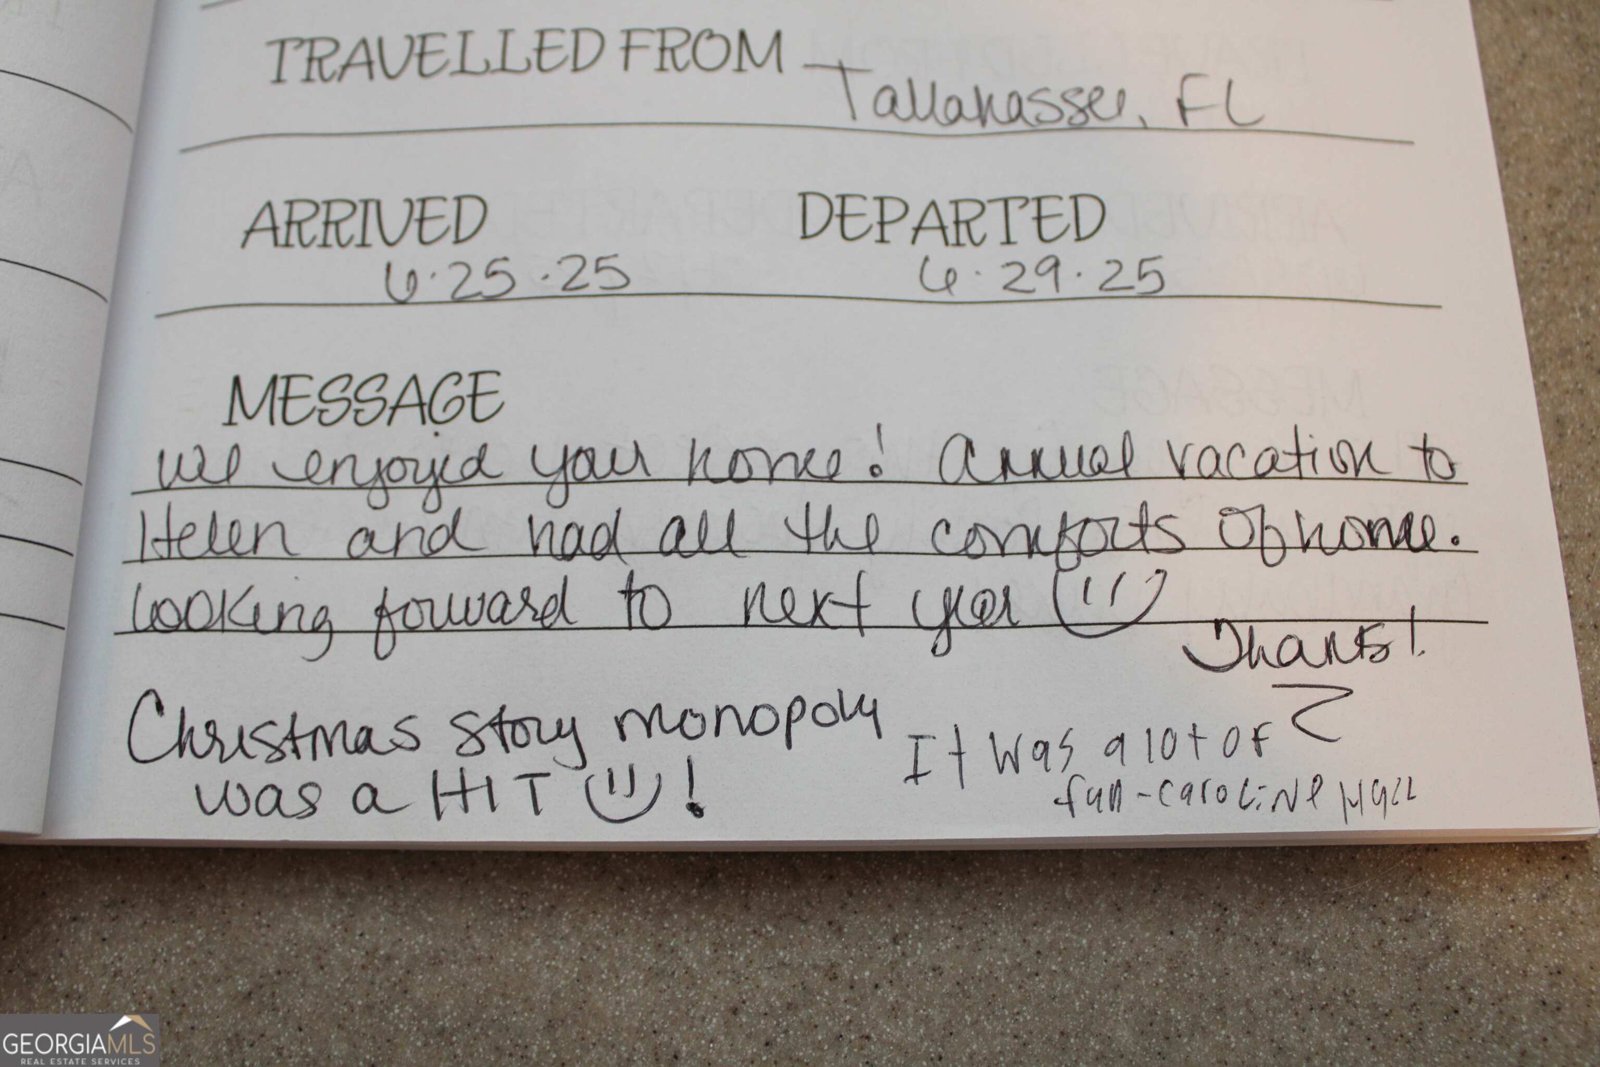 TRAVELLED FROM Tallahassee, FL
ARRIVED DEPARTED
6.25.25 6.29.25
MESSAGE
We enjoyed your home! Annual vacation to
Helen and had all the comforts of home.
Looking forward to next year
Thanks!
Christmas story monopoly
was a HIT !
It was a lot of
fun - caroline
GEORGIAMLS
REAL ESTATE SERVICES